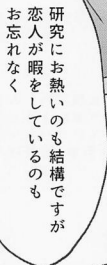 研究にお熱いのも結構ですが
恋人が暇をしているのも
お忘れなく